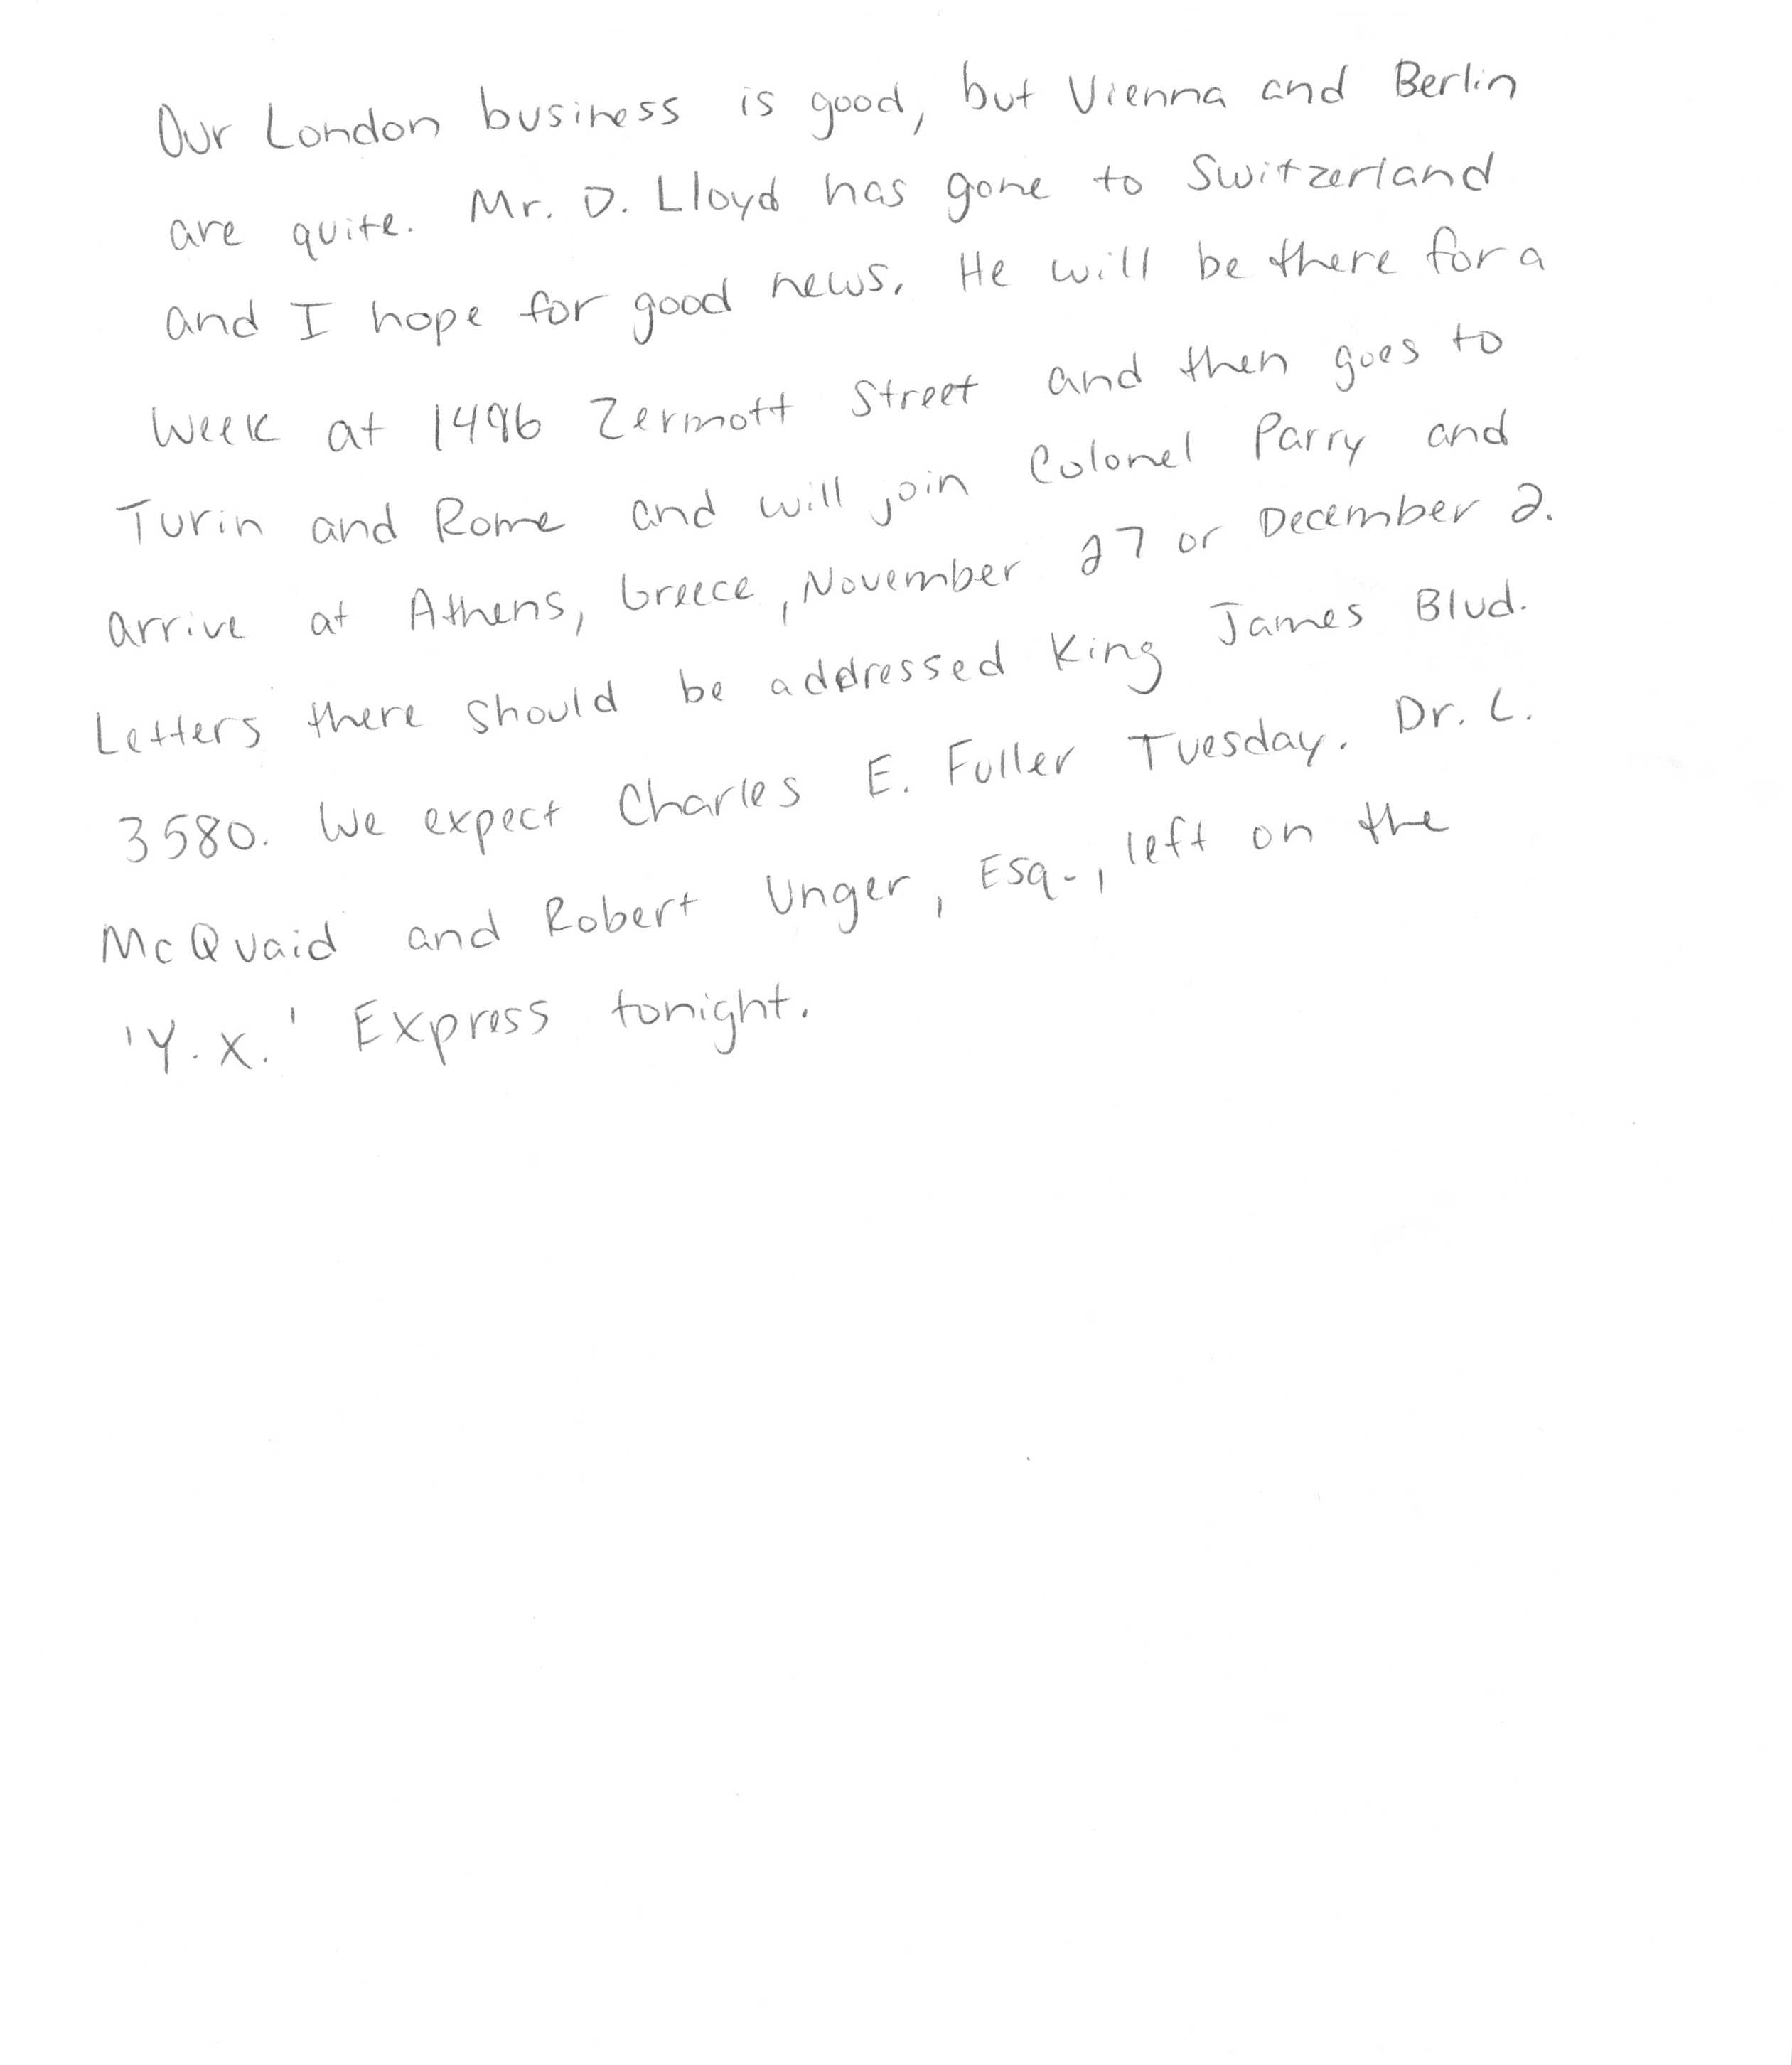 Our London business is good, but Vienna and Berlin
are quite. Mr. D. Lloyd has gone to Switzerland
and I hope for good news. He will be there for a
week at 1496 Zermott Street and then goes to
Turin and Rome and will join Colonel Parry and
arrive at Athens, Greece, November 27 or December 2.
Letters there should be addressed King James Blvd.
3580. We expect Charles E. Fuller Tuesday. Dr. L.
McQuaid and Robert Unger, Esq., left on the
'Y.X.' Express tonight.